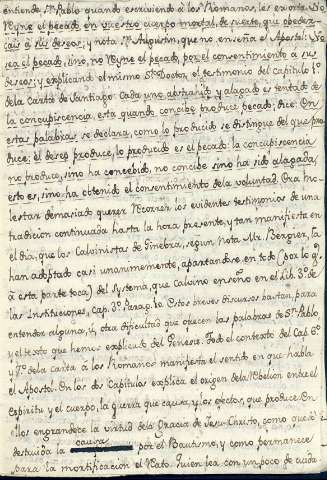 entiende Sn. Pablo quando escriviendo á los Romanos, les exorta: No
Reyne el pecado en vuestro cuerpo mortal, de suerte, que obedez-
cais á sus deseos; y nota Sn. Agustin, que no enseña el Apostol: No
sea el pecado, sino, no Reyne el pecado, por el consentimiento á sus
deseos; y explicando el mismo Sto. Doctor, el testimonio del Capitulo 1º
de la Carta de Santiago: Cada uno abstraido y alagado es tentado de
la concupiscencia, esta quando concibe produce pecado; dice: En
estas palabras se declara, como lo producido se distingue del que pro-
duce; el deseo produce, lo producido es el pecado: la concupiscencia
no produce, sino ha concebido, no concibe sino ha sido alagada,
esto es, sino ha obtenido el consentimiento de la voluntad. Era mo-
lestar demasiado querer Recorrer los evidentes testimonios de una
tradicion continuada hasta la hora presente, y tan manifesta en
el dia, que los Calvinistas de Ginebra, segun nota Mr. Bergier, la
han adoptado casi unanimemente, apartandose en todo (por lo q.
á esta parte toca) del Systema, que Calvino enseñó en el Lib. 3º de
las Instituciones, Cap. 3º Parag. 10. Estos breves discursos bastan, para
entender alguna, ú otra dificultad que ofrecen las palabras de Sn. Pablo
y el texto que hemos explicado del Genesis. Todo el contexto del Cap. 6º
y 7º de la carta á los Romanos manifesta el sentido en que habla
el Apostol. En los dos Capitulos explica el origen de la Rebelion entre el
espiritu y el cuerpo, la guerra que causa, y los efectos, que produce. En
ellos engrandece la virtud de la Gracia de Jesu-Christo, como queda
destruida la causa por el Bautismo, y como permanece
para la mortificacion el Reato. Quien lea con un poco de cuida